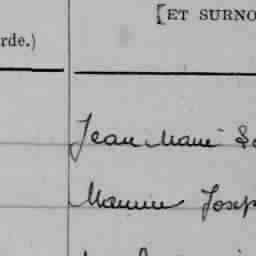 [ET SURNO
rde.)
Jean Marie
Maurice Josep